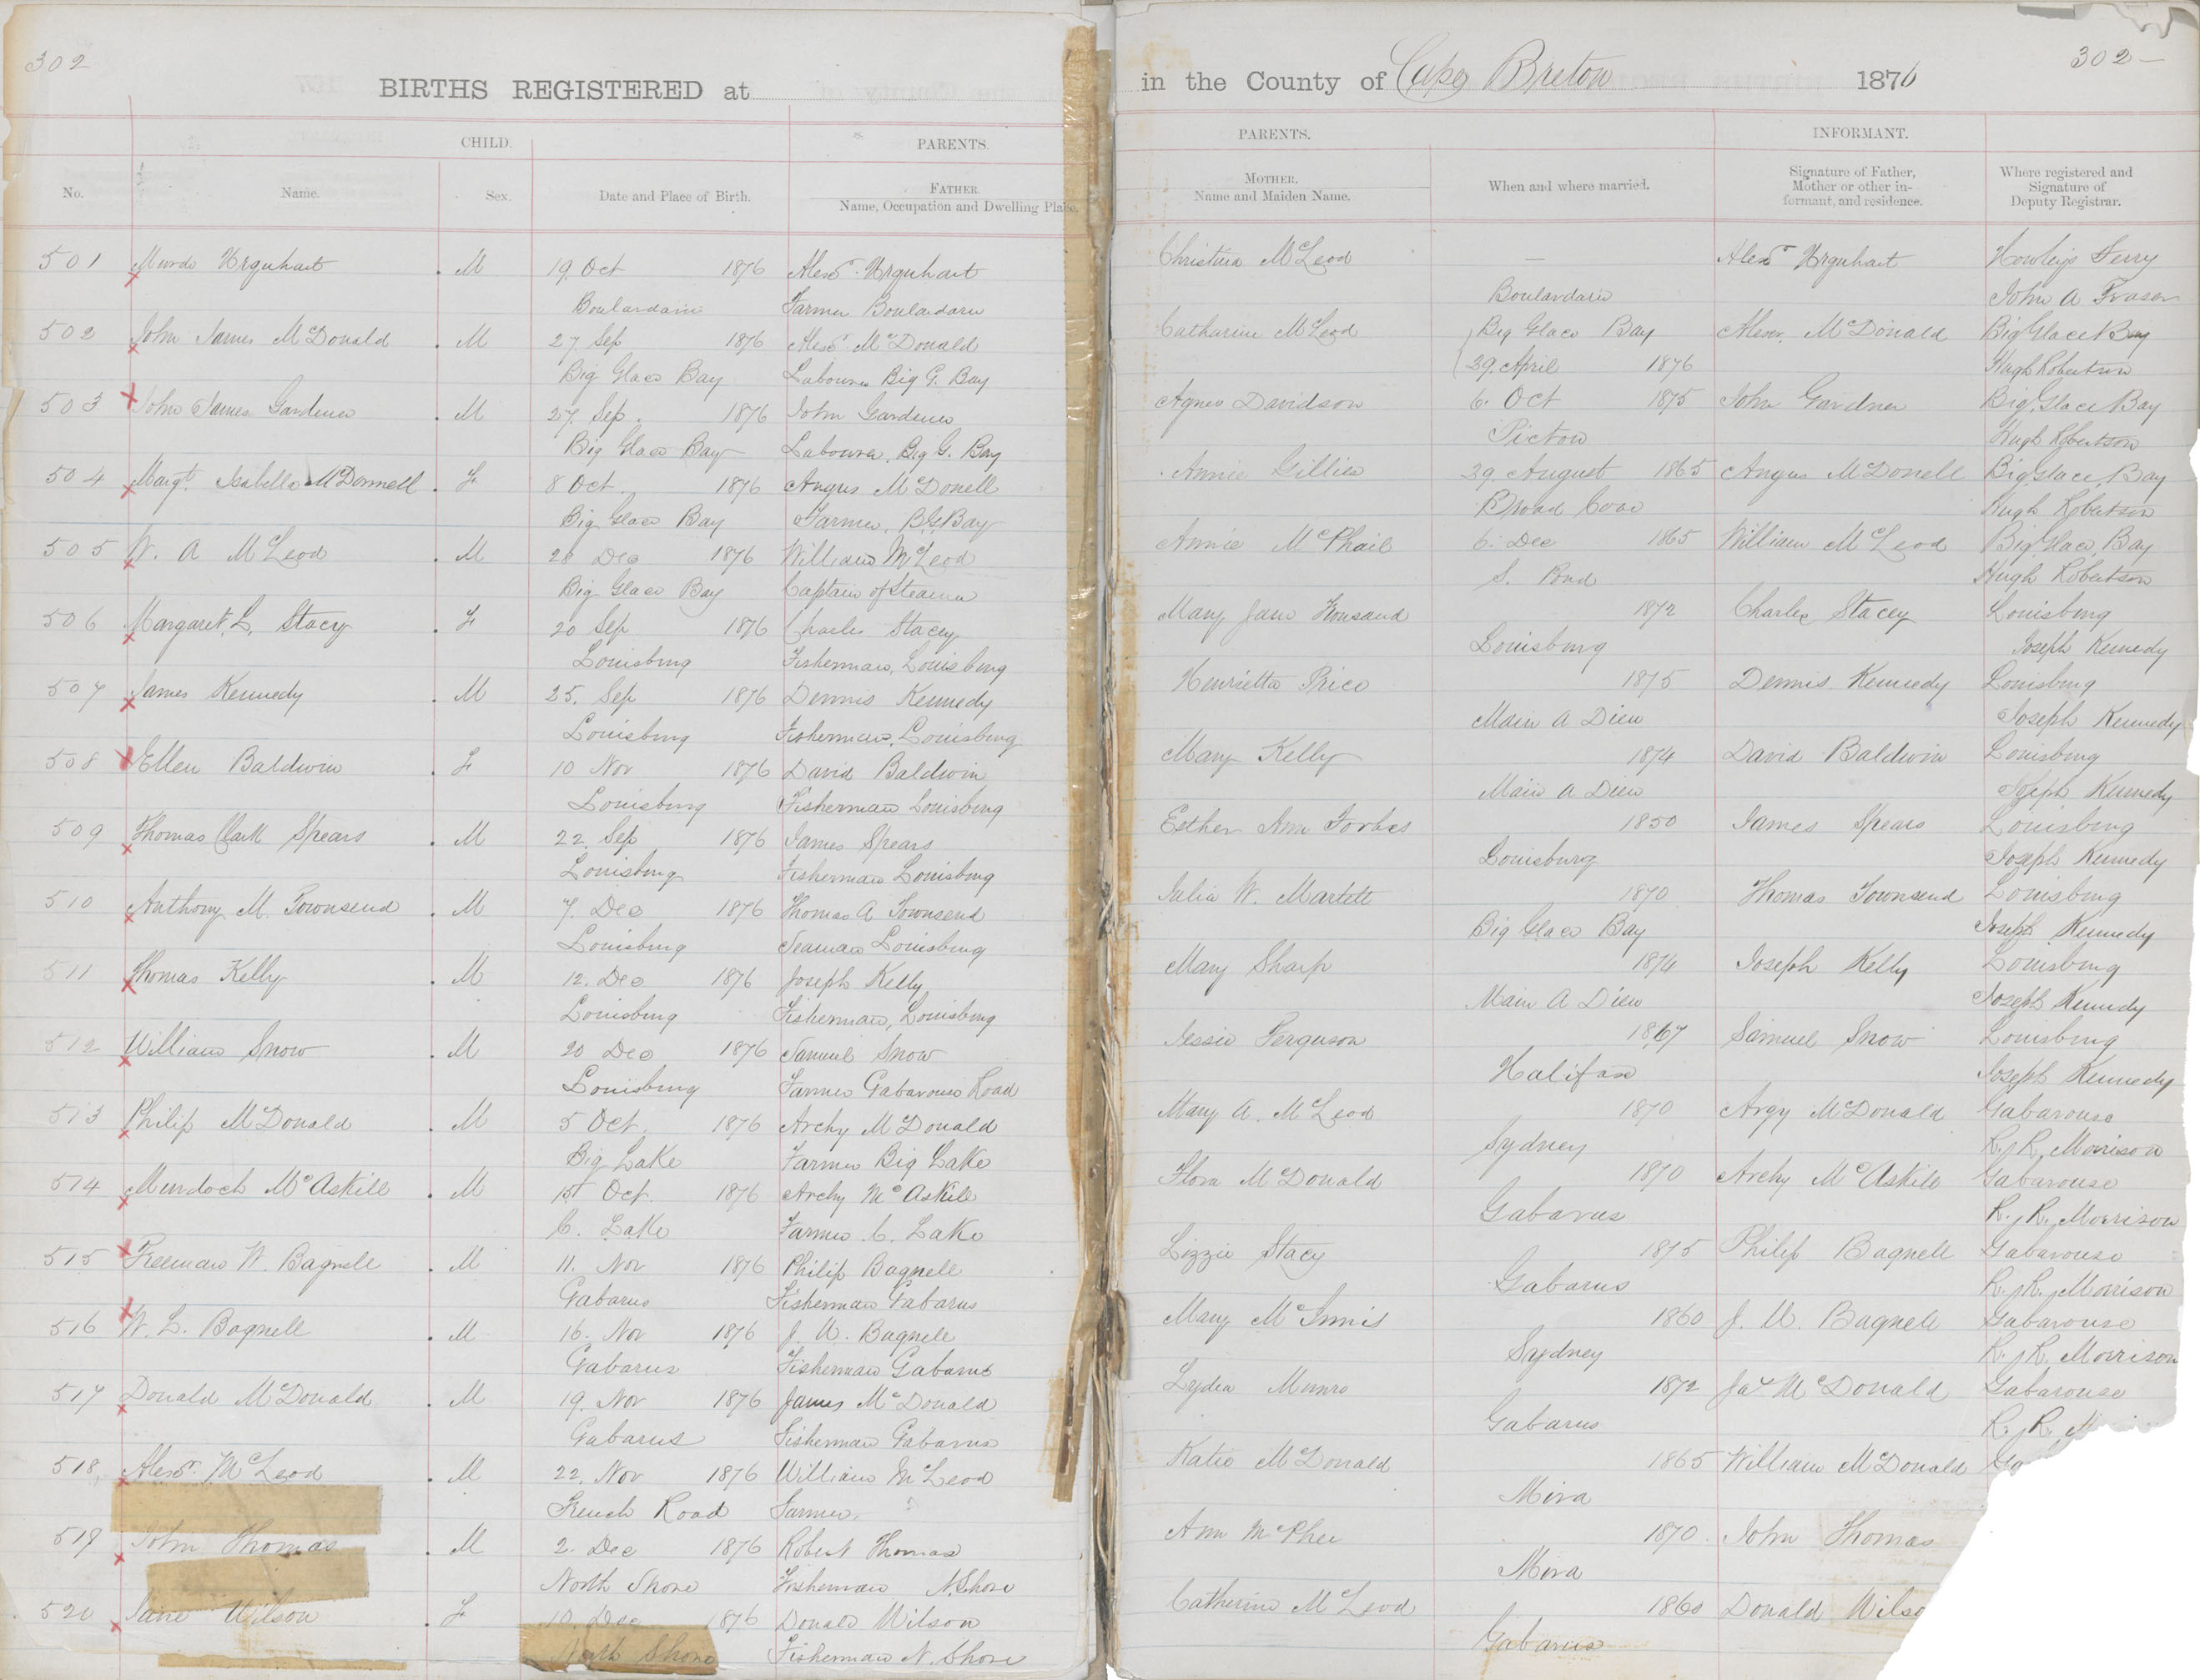 302
302 —
BIRTHS REGISTERED at
in the County of Cape Breton 1876
CHILD.
PARENTS.
PARENTS.
INFORMANT.
No.
Name.
Sex.
Date and Place of Birth.
FATHER.
Name, Occupation and Dwelling Place.
MOTHER.
Name and Maiden Name.
When and where married.
Signature of Father,
Mother or other in-
formant, and residence.
Where registered and
Signature of
Deputy Registrar.
501 Murdo Urquhart M 19 Oct 1876 Alexr. Urquhart Christina McLeod — Alexr Urquhart Howleys Ferry
Boulardarie Farmer Boulardarie Boulardarie John A Fraser
502 John James McDonald M 27 Sep 1876 Alexr. McDonald Catharine McLeod Big Glace Bay Alexr. McDonald Big Glace Bay
Big Glace Bay Labourer Big G. Bay 29 April 1876 Hugh Robertson
503 John James Gardener M 27 Sep. 1876 John Gardener Agnes Davidson 6. Oct 1875 John Gardner Big Glace Bay
Big Glace Bay Labourer, Big G. Bay Pictou Hugh Robertson
504 Margt. Isabella McDonnell F 8 Oct 1876 Angus McDonell Annie Gillis 29 August 1865 Angus McDonell Big Glace, Bay
Big Glace Bay Farmer, B. G. Bay Broad Cove Hugh Robertson
505 W. A McLeod M 28 Dec 1876 William McLeod Annie McPhail 6. Dec 1865 William McLeod Big Glace, Bay
Big Glace Bay Captain of Steamer S. Pond Hugh Robertson
506 Margaret, L. Stacy F 20 Sep 1876 Charles Stacey Mary Jane 1872 Charles Stacey Louisburg
Louisburg Fisherman, Louisburg Louisburg Joseph Kennedy
507 James Kennedy M 25. Sep 1876 Dennis Kennedy Henrietta Price 1875 Dennis Kennedy Louisburg
Louisburg Fisherman, Louisburg Main A Dieu Joseph Kennedy
508 Ellen Baldwin F 10 Nov 1876 David Baldwin Mary Kelly 1874 David Baldwin Louisburg
Louisburg Fisherman Louisburg Main A Dieu Joseph Kennedy
509 Thomas Clark Spears M 22. Sep 1876 James Spears Esther Ann Forbes 1850 James Spears Louisburg
Louisburg Fisherman Louisburg Louisburg Joseph Kennedy
510 Anthony M. Townsend M 7. Dec 1876 Thomas A Townsend Julia W. Martell 1870 Thomas Townsend Louisburg
Louisburg Seaman Louisburg Big Glace Bay Joseph Kennedy
511 Thomas Kelly M 12. Dec 1876 Joseph Kelly Mary Sharp 1874 Joseph Kelly Louisburg
Louisburg Fisherman, Louisburg Main A Dieu Joseph Kennedy
512 William Snow M 20 Dec 1876 Samuel Snow Jessie Ferguson 1867 Samuel Snow Louisburg
Louisburg Farmer Gabarouse Road Halifax Joseph Kennedy
513 Philip McDonald M 5 Oct. 1876 Archy McDonald Mary A. McLeod 1870 Argy McDonald Gabarouse
Big Lake Farmer Big Lake Sydney R. R. Morrison
514 Murdoch McAskill M 15 Oct 1876 Archy McAskill Flora McDonald 1870 Archy McAskill Gabarouse
C. Lake Farmer C. Lake Gabarus R. R. Morrison
515 Freeman W. Bagnell M 11. Nov 1876 Philip Bagnell Lizzie Stacy 1875 Philip Bagnell Gabarouse
Gabarus Fisherman Gabarus Gabarus R. R. Morrison
516 W. L. Bagnell M 16. Nov 1876 J. W. Bagnell Mary McInnis 1860 J. W. Bagnell Gabarouse
Gabarus Fisherman Gabarus Sydney R. R. Morrison
517 Donald McDonald M 19. Nov 1876 James McDonald Lydia Munro 1872 Jas McDonald Gabarouse
Gabarus Fisherman Gabarus Gabarus R. R. M
518 Alexr. McLeod M 22. Nov 1876 William McLeod Katie McDonald 1865 William McDonald Ga
French Road Farmer. Mira
519 John Thomas M 2. Dec 1876 Robert Thomas Ann McPhee 1870. John Thomas
North Shore Fisherman N. Shore Mira
520 Jane Wilson F 10. Dec 1876 Donald Wilson Catherine McLeod 1860 Donald Wilso
North Shore Fisherman N. Shore Gabarus